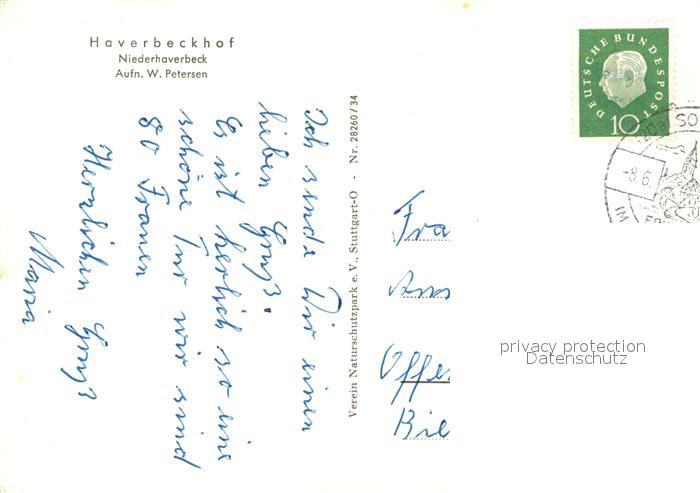 Haverbeckhof
Niederhaverbeck
Aufn. W. Petersen
Ich sende Dir einen
lieben Gruß.
Es ist herlich so eine
schöne Tur wir sind
80 Frauen
Herzlichen Gruß
Maria
Verein Naturschutzpark e. V., Stuttgart-O - Nr. 28260/34
DEUTSCHE BUNDESPOST
10
(20a) SO
-8.6.
IM
Fra
Am
Offe
Bie
privacy protection
Datenschutz